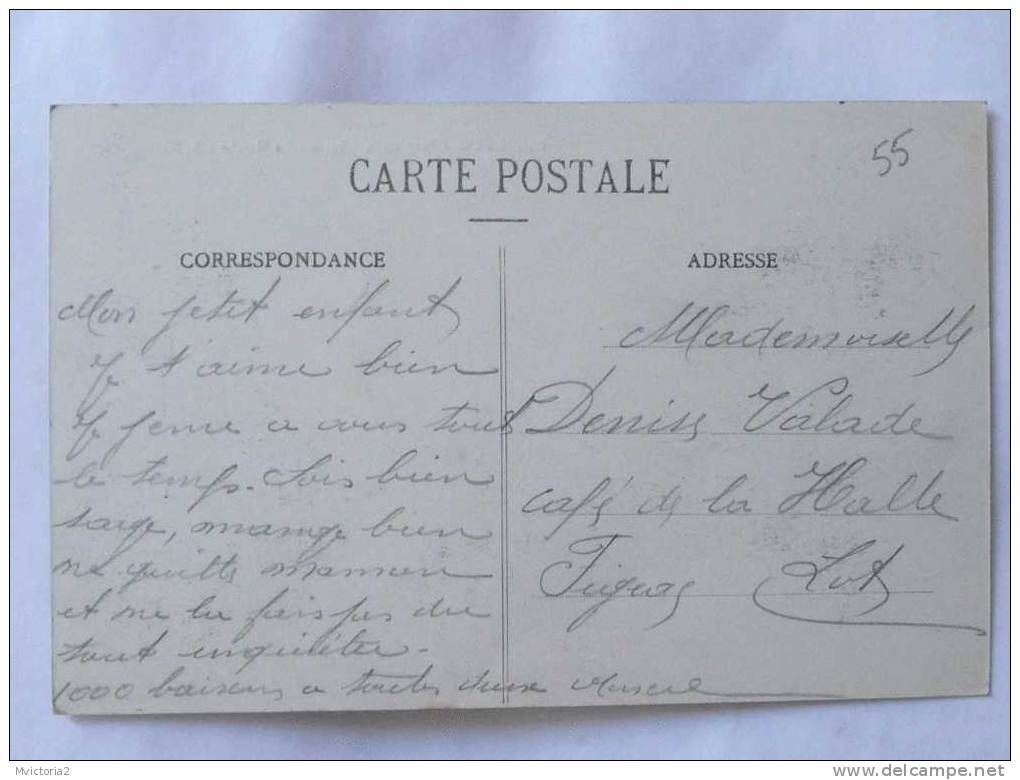 CARTE POSTALE
55
CORRESPONDANCE
Mon petit enfant
Je t'aime bien
Je pense a vous tout
le temps. Sois bien
sage, mange bien
ne quitte maman
et ne la fais pas du
tout inquiéter.
1000 baisers a toutes deux
ADRESSE
Mademoiselle
Denise Valade
café de la Halle
Figeac Lot
Mvictoria2
www.delcampe.net